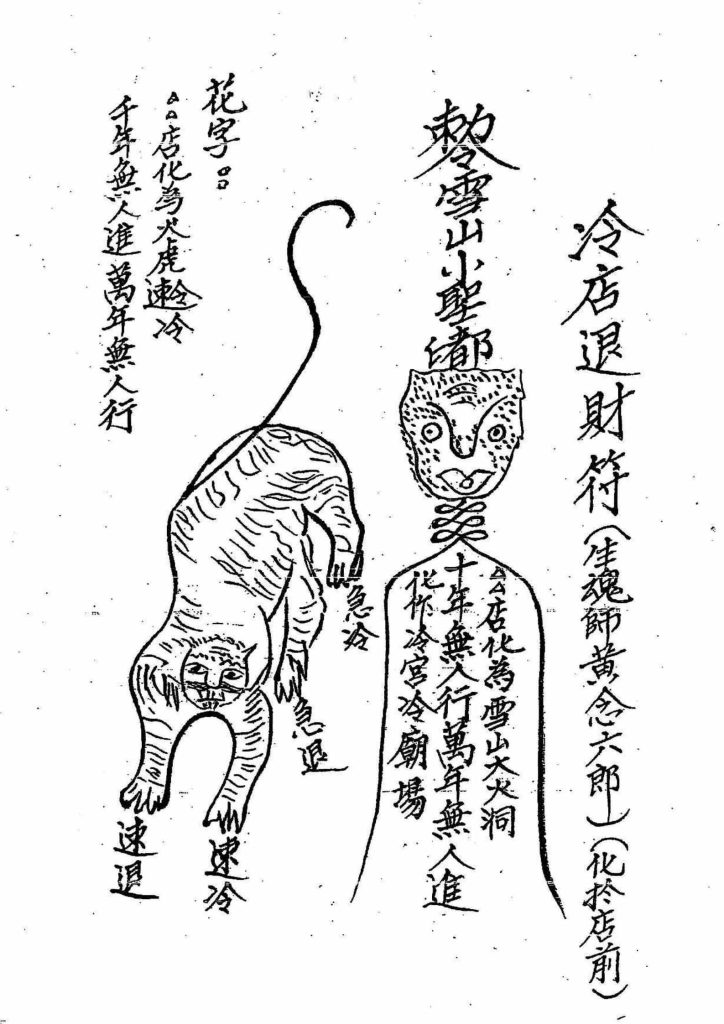 冷店退財符(生魂師黃念六郎)(化於店前)
敕令雪山小聖都
△△店化為雪山大火洞
十年無人行萬年無人進
化作冷宮冷廟場
急冷
急退
速冷
速退
花字:
△△店化為火虎速冷
千年無人進萬年無人行